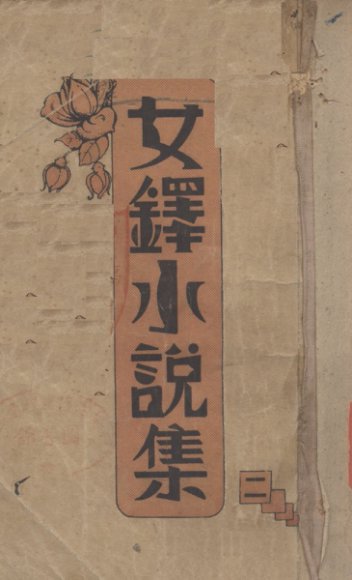 女鐸小說集
二